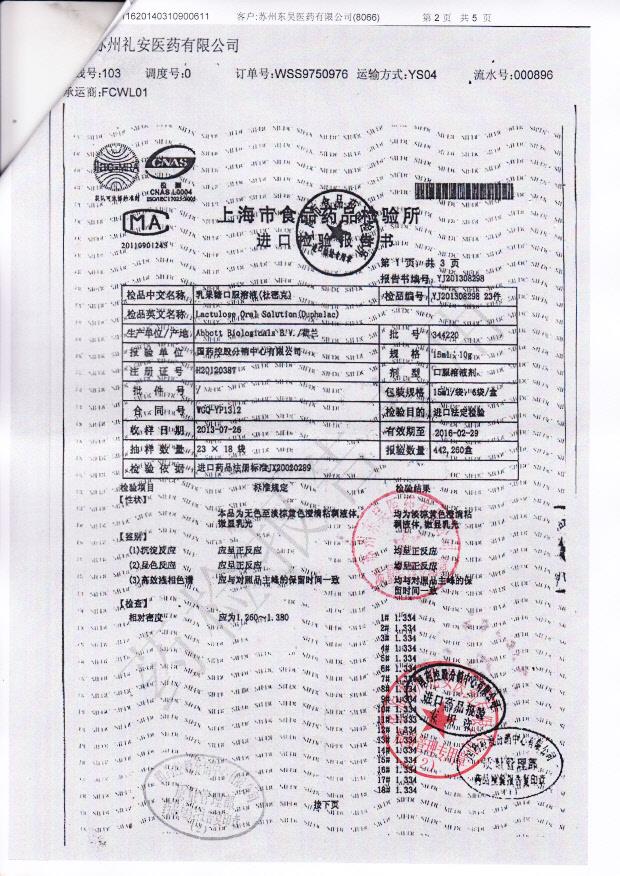 1620140310900611 客户:苏州东吴医药有限公司(8066) 第 2 页 共 5 页
苏州礼安医药有限公司
线号:103 调度号:0 订单号:WSS9750976 运输方式:YS04 流水号:000896
承运商:FCWL01
CNAS
检测
CNAS L0004
MA
上海市食品药品检验所
进口检验报告书
第 1 页 共 3 页
报告书编号 YJ201308298
检品中文名称 乳果糖口服溶液(杜密克) 检品编号 YJ201308298 23件
检品英文名称 Lactulose Oral Solution(Duphalac)
生产单位/产地 Abbott Biologicals B.V./荷兰 批号 344220
报验单位 国药控股分销中心有限公司 规格 15ml:10g
注册证号 H20120387 剂型 口服溶液剂
批件号 / 包装规格 15ml/袋, 6袋/盒
合同号 WGQ-YP1312 检验目的 进口法定检验
收样日期 2013-07-26 有效期至 2016-02-29
抽样数量 23 × 18 袋 报验数量 442,260盒
检验依据 进口药品注册标准JX20020289
检验项目 标准规定 检验结果
【性状】
本品为无色至淡棕黄色澄清粘稠液体, 均为淡棕黄色澄清粘
微显乳光 稠液体,微显乳光
【鉴别】
(1)沉淀反应 应呈正反应 均呈正反应
(2)显色反应 应呈正反应 均呈正反应
(3)高效液相色谱 应与对照品主峰的保留时间一致 均与对照品主峰的保
留时间一致
【检查】
相对密度 应为1.260~1.380 1# 1.334
2# 1.334
3# 1.334
4# 1.334
5# 1.334
6# 1.334
7# 1.334
8# 1.334
9# 1.334
10# 1.334
11# 1.333
12# 1.334
13# 1.334
14# 1.334
15# 1.334
16# 1.334
17# 1.334
18# 1.334
接下页